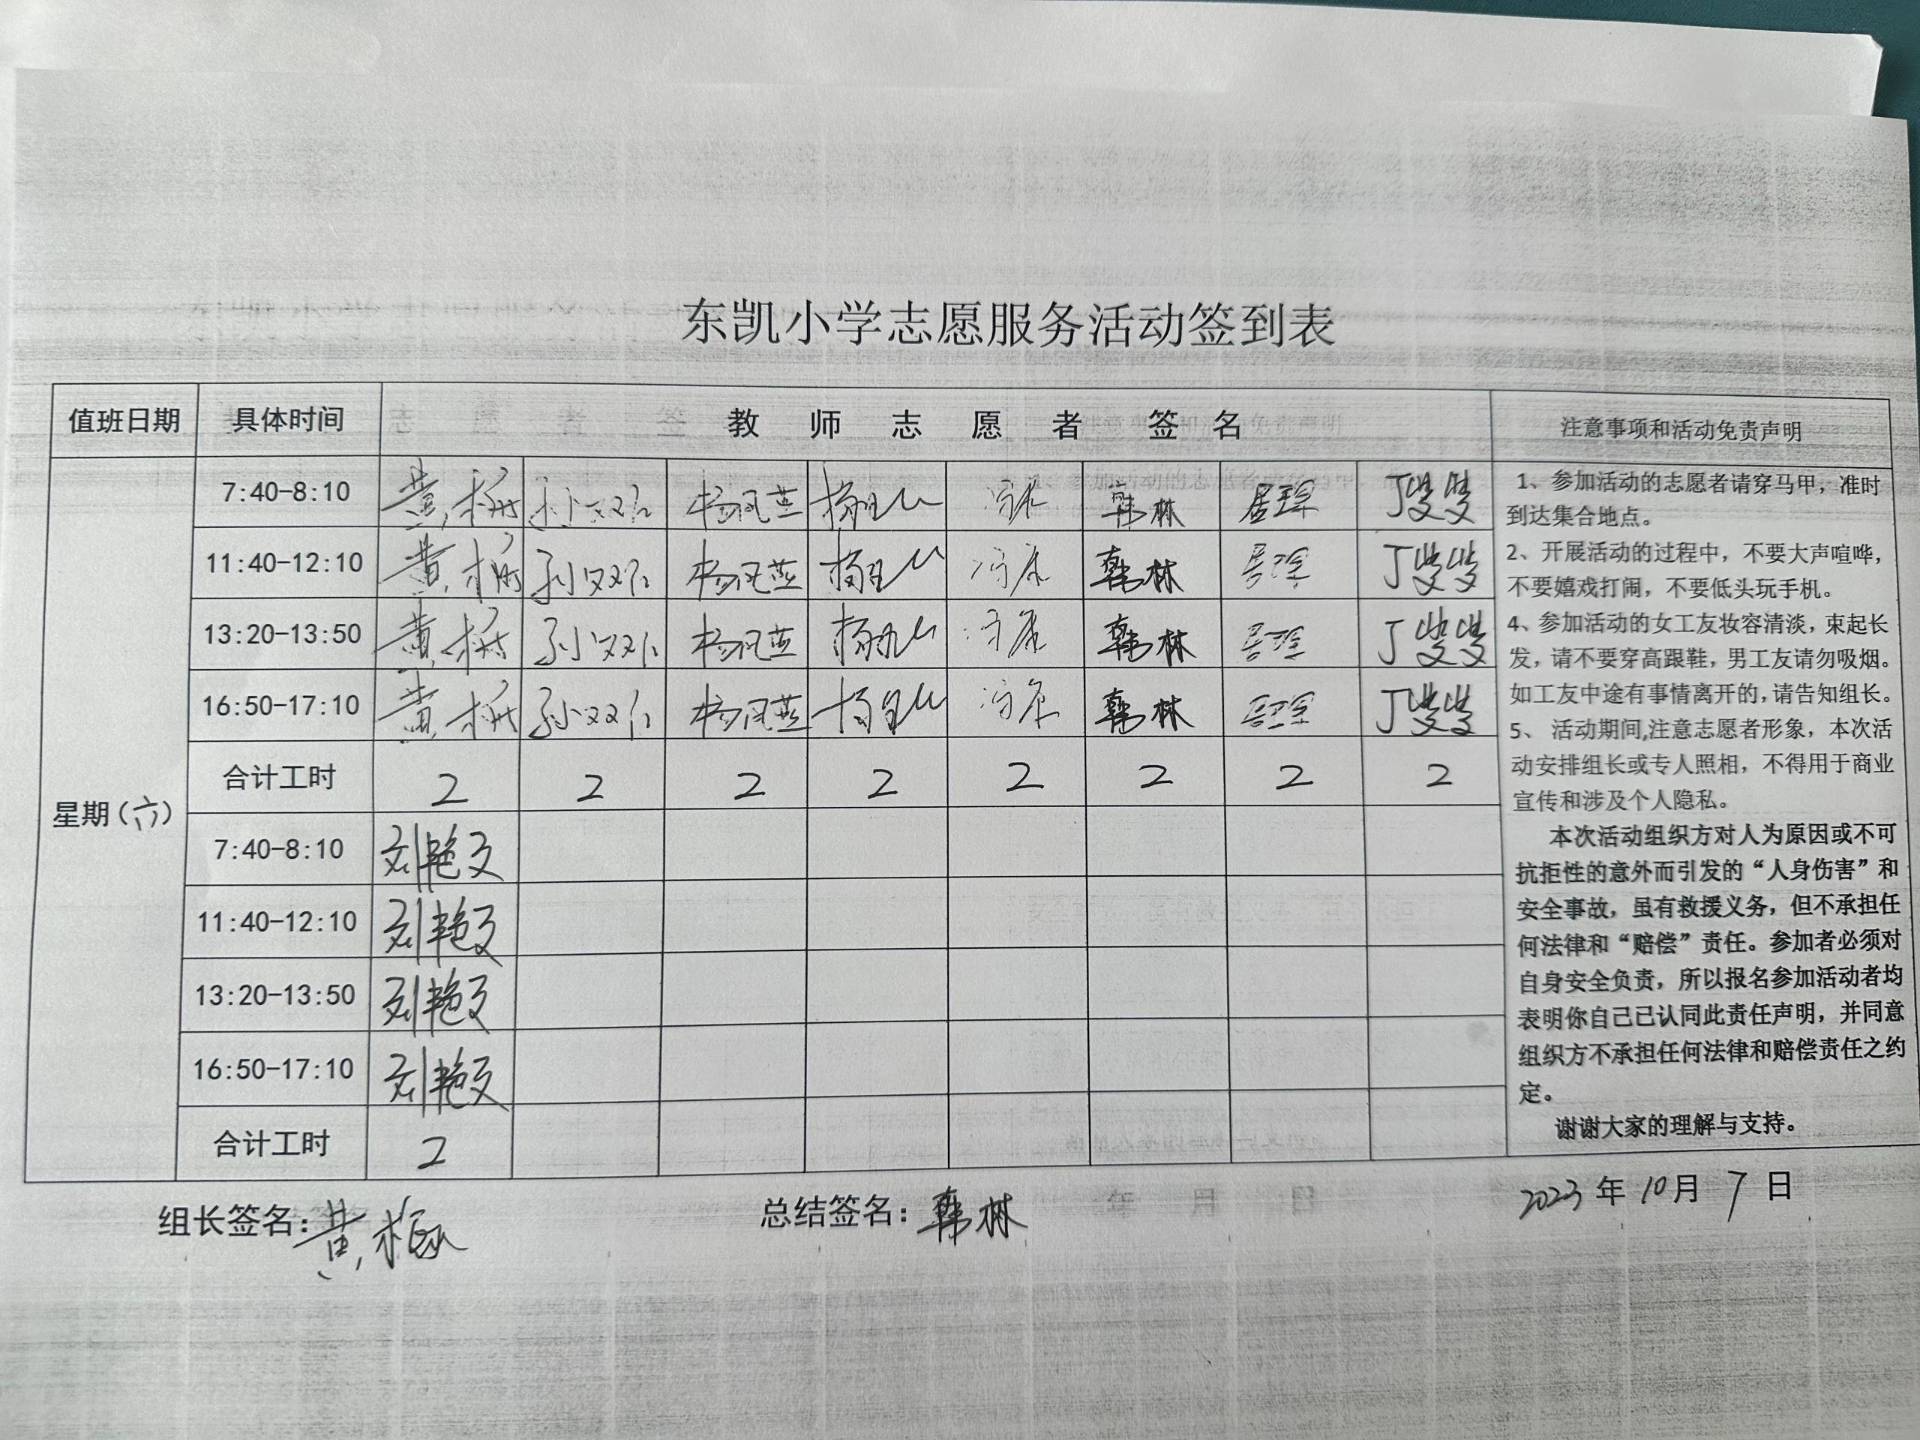 东凯小学志愿服务活动签到表
值班日期 具体时间 教师志愿者签名 注意事项和活动免责声明
星期(六)
7:40-8:10 黄 杨凤燕 韩林 丁斐斐
11:40-12:10 黄 孙双 杨凤燕 韩林 丁斐斐
13:20-13:50 黄 孙双 杨凤燕 韩林 丁斐斐
16:50-17:10 黄 孙双 杨凤燕 韩林 丁斐斐
合计工时 2 2 2 2 2 2 2 2
7:40-8:10 刘艳文
11:40-12:10 刘艳文
13:20-13:50 刘艳文
16:50-17:10 刘艳文
合计工时 2
1、参加活动的志愿者请穿马甲，准时
到达集合地点。
2、开展活动的过程中，不要大声喧哗，
不要嬉戏打闹，不要低头玩手机。
4、参加活动的女工友妆容清淡，束起长
发，请不要穿高跟鞋，男工友请勿吸烟。
如工友中途有事情离开的，请告知组长。
5、 活动期间,注意志愿者形象，本次活
动安排组长或专人照相，不得用于商业
宣传和涉及个人隐私。
本次活动组织方对人为原因或不可
抗拒性的意外而引发的“人身伤害”和
安全事故，虽有救援义务，但不承担任
何法律和“赔偿”责任。参加者必须对
自身安全负责，所以报名参加活动者均
表明你自己已认同此责任声明，并同意
组织方不承担任何法律和赔偿责任之约
定。
谢谢大家的理解与支持。
组长签名：黄 总结签名：韩林 2023年10月7日